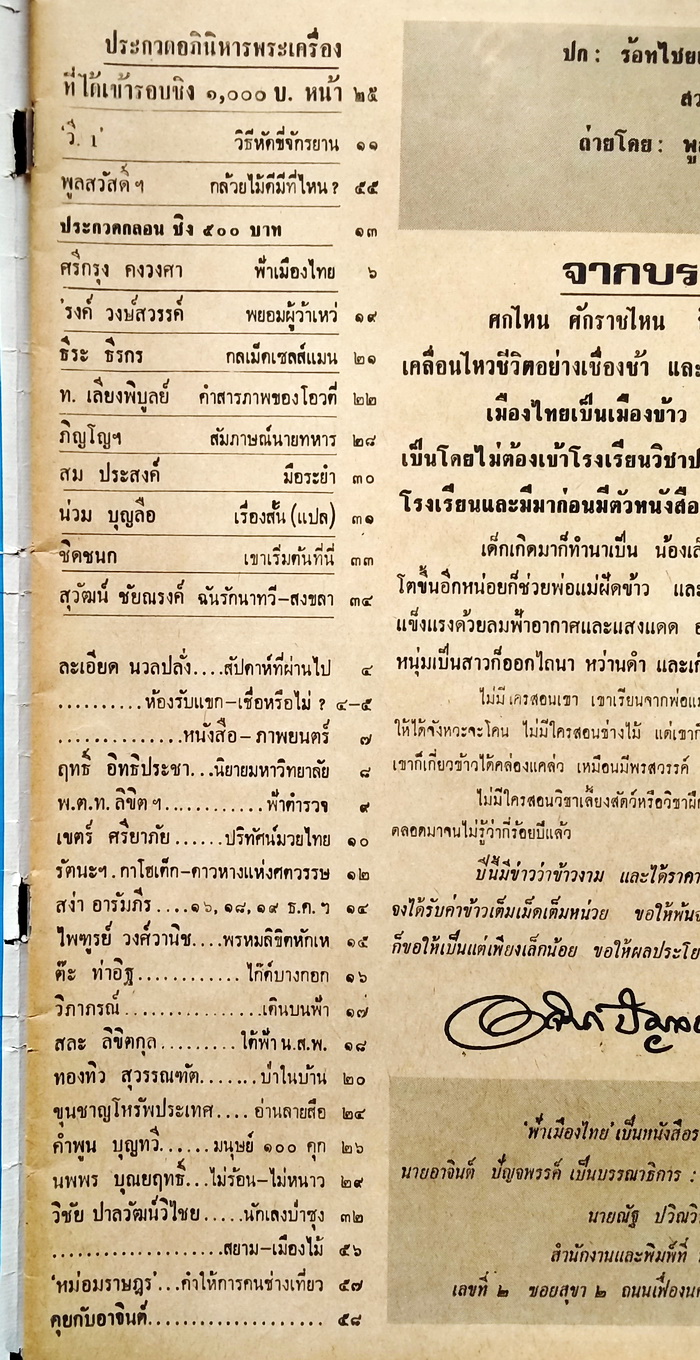 ประกวดอภินิหารพระเครื่อง
ที่ได้เข้ารอบชิง ๑,๐๐๐ บ. หน้า ๒๕
วิธีหัดขี่จักรยาน ๑๑
พูลสวัสดิ์ ฯ กล้วยไม้ดีมีที่ไหน ? ๕๕
ประกวดกลอน ชิง ๕๐๐ บาท ๑๓
ศรีกรุง คงวงศา ฟ้าเมืองไทย ๖
'รงค์ วงษ์สวรรค์ พยอมผู้ว้าเหว่ ๑๙
ธีระ ธิรกร กลเม็ดเซลส์แมน ๒๑
ท. เลียงพิบูลย์ คำสารภาพของโอวตี่ ๒๒
ภิญโญฯ สัมภาษณ์นายทหาร ๒๘
สม ประสงค์ มือระยำ ๓๐
น่วม บุญลือ เรื่องสั้น (แปล) ๓๑
ชิดชนก เขาเริ่มต้นที่นี่ ๓๓
สุวัฒน์ ชัยณรงค์ ฉันรักนาทวี–สงขลา ๓๔
ละเอียด นวลปลั่ง....สัปดาห์ที่ผ่านไป ๔
..........ห้องรับแขก–เชื่อหรือไม่ ? ๔–๕
..............หนังสือ–ภาพยนตร์ ๗
ฤทธิ์ อิทธิประชา...นิยายมหาวิทยาลัย ๘
พ.ต.ท. ลิขิต ฯ............ฟ้าตำรวจ ๙
เขตร์ ศรียาภัย......ปริทัศน์มวยไทย ๑๐
รัตนะฯ . กาโฮเต็ก–ดาวหางแห่งศตวรรษ ๑๒
สง่า อารัมภีร....๑๖, ๑๘, ๑๙ ธ.ค. ๆ ๑๔
ไพฑูรย์ วงศ์วานิช....พรหมลิขิตหักเห ๑๕
ต๊ะ ท่าอิฐ............ไก๊ด์บางกอก ๑๖
วิภาภรณ์................เดินบนฟ้า ๑๗
สละ ลิขิตกุล.........ใต้ฟ้า น.ส.พ. ๑๘
ทองทิว สุวรรณทัต.......บ่าในบ้าน ๒๐
ขุนชาญโหรัพประเทศ.... อ่านลายสือ ๒๔
คำพูน บุญทวี......มนุษย์ ๑๐๐ คุก ๒๖
นพพร บุณยฤทธิ์...ไม่ร้อน–ไม่หนาว ๒๙
วิชัย ปาลวัฒน์วิไชย.....นักเลงบ่าซุง ๓๒
....................สยาม–เมืองไม้ ๕๖
'หม่อมราษฎร'...คำให้การคนช่างเที่ยว ๕๗
คุยกับอาจินต์.................... ๕๘
ปก :
ถ่ายโดย :
จากบร
ศกไหน ศักราชไหน
เคลื่อนไหวชีวิตอย่างเชื่องช้า และ
เมืองไทยเป็นเมืองข้าว
เป็นโดยไม่ต้องเข้าโรงเรียนวิชาป
โรงเรียนและมีมาก่อนมีตัวหนังสือ
เด็กเกิดมาก็ทำนาเป็น น้องเล็
โตขึ้นอีกหน่อยก็ช่วยพ่อแม่ฝัดข้าว และ
แข็งแรงด้วยลมฟ้าอากาศและแสงแดด
หนุ่มเป็นสาวก็ออกไถนา หว่านดำ และเก็
ไม่มีใครสอนเขา เขาเรียนจากพ่อแม
ให้ได้จังหวะจะโคน ไม่มีใครสอนช่างไม้ แต่เขาก็
เขาก็เกี่ยวข้าวได้คล่องแคล่ว เหมือนมีพรสวรรค์
ไม่มีใครสอนวิชาเลี้ยงสัตว์หรือวิชาฝึก
ตลอดมาจนไม่รู้ว่ากี่ร้อยปีแล้ว
ปีนี้มีข่าวว่าข้าวงาม และได้ราคา
จงได้รับค่าข้าวเต็มเม็ดเต็มหน่วย ขอให้พ้น
ก็ขอให้เป็นแต่เพียงเล็กน้อย ขอให้ผลประโย
'ฟ้าเมืองไทย' เป็นหนังสือร
นายอาจินต์ ปัญจพรรค์ เป็นบรรณาธิการ :
นายณัฐ ปวิณวิ
สำนักงานและพิมพ์ที่
เลขที่ ๒ ซอยสุขา ๒ ถนนเฟื่องน